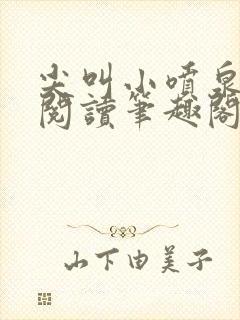 尖叫小噴泉
閱讀筆趣閣
山下由美子